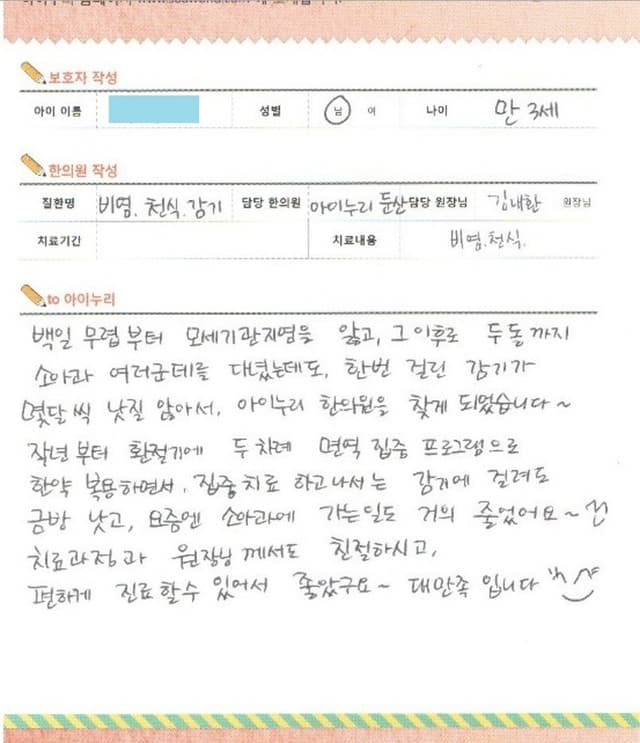 보호자 작성
아이 이름 성별 남 여 나이 만 3세
한의원 작성
질환명 비염. 천식. 감기 담당 한의원 아이누리 둔산 담당 원장님 김내환 원장님
치료기간 치료내용 비염.천식.
to 아이누리
백일 무렵부터 모세기관지염을 앓고, 그 이후로 두돌까지
소아과 여러군데를 다녔는데도, 한번 걸린 감기가
몇달씩 낫질 않아서, 아이누리 한의원을 찾게 되었습니다~
작년부터 환절기에 두차례 면역 집중 프로그램으로
한약 복용하면서, 집중치료 하고나서는 감기에 걸려도
금방 낫고, 요즘엔 소아과에 가는일도 거의 줄었어요~
치료과정과 원장님께서도 친절하시고,
편하게 진료할수 있어서 좋았구요~ 대만족 입니다